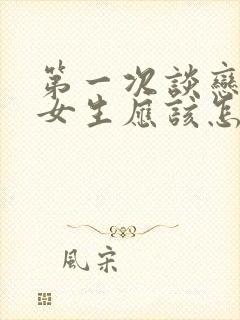 第一次談戀
女生應該怎
風宋